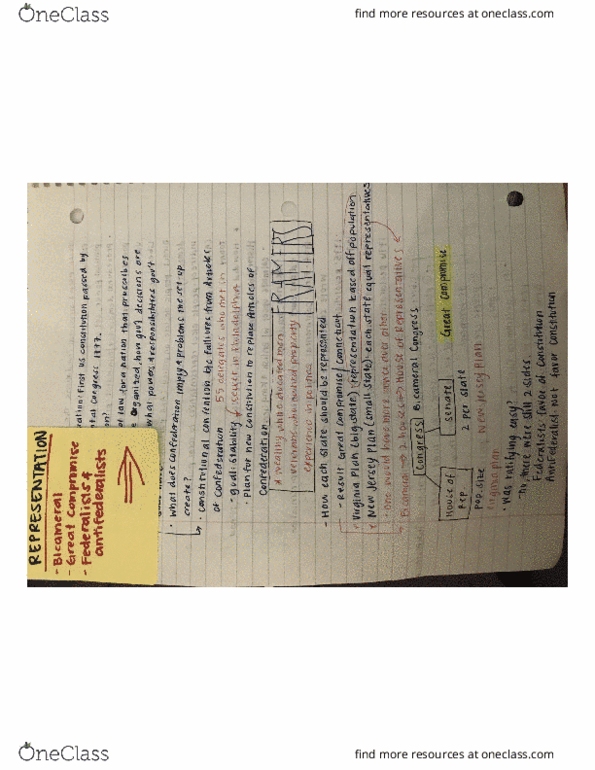 OneClass
find more resources at oneclass.com
REPRESENTATION
- Bicameral
- Great Compromise
- Federalists &
antifederalists
eration: First US constitution passed by
tal Congress 1777.
of law for a nation that prescribes
be organized, how gov't decisions are
what powers & responsibilities gov't
• What does confederation imply & problems the set up
create?
• Constitutional convention the failures from Articles
of Confederation 55 delegates who met in
- goal: stability secret in Philadelphia
• Plan for new constitution to replace Articles of
Confederation
* wealthy, white educated men
veterans, who owned property
experience in politics
FRAMERS
- How each state should be represented
- Result Great Compromise / Connecticut
Virginia Plan (big state) representation based off population
New Jersey Plan (small state) each state equal representatives
• one would have more since over other
• Bicameral → 2 houses → House of Representatives
Congress Bicameral Congress
House of
rep
senate
Great Compromise
pop. size
2 per state
Virginia plan
New Jersey Plan
Was ratifying easy?
- No, there were still 2 sides
Federalists favor of Constitution
AntiFederalist not favor Constitution
OneClass
find more resources at oneclass.com